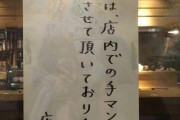 は、店内での手マン
させて頂いており
店